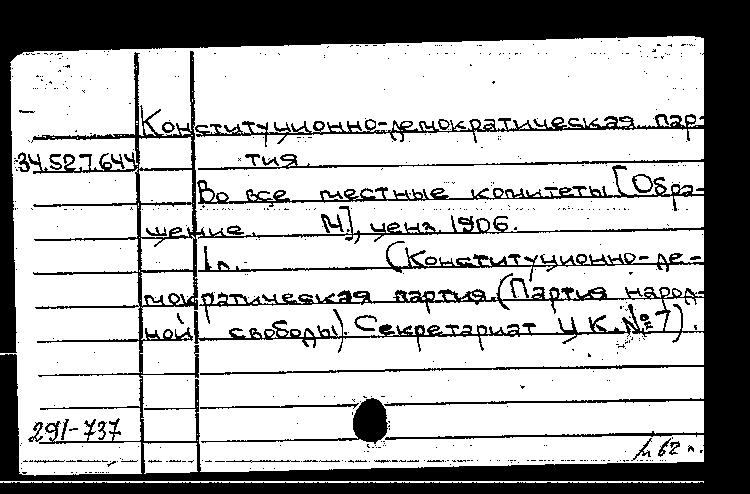 Конституционно-демократическая пар-
34.52.7.644 тия.
Во все местные комитеты [Обра-
щение. М.], ценз. 1906.
1л. (Конституционно-де-
мократическая партия. (Партия народ-
ной свободы). Секретариат Ц.К. №7).
291-737
62 л.